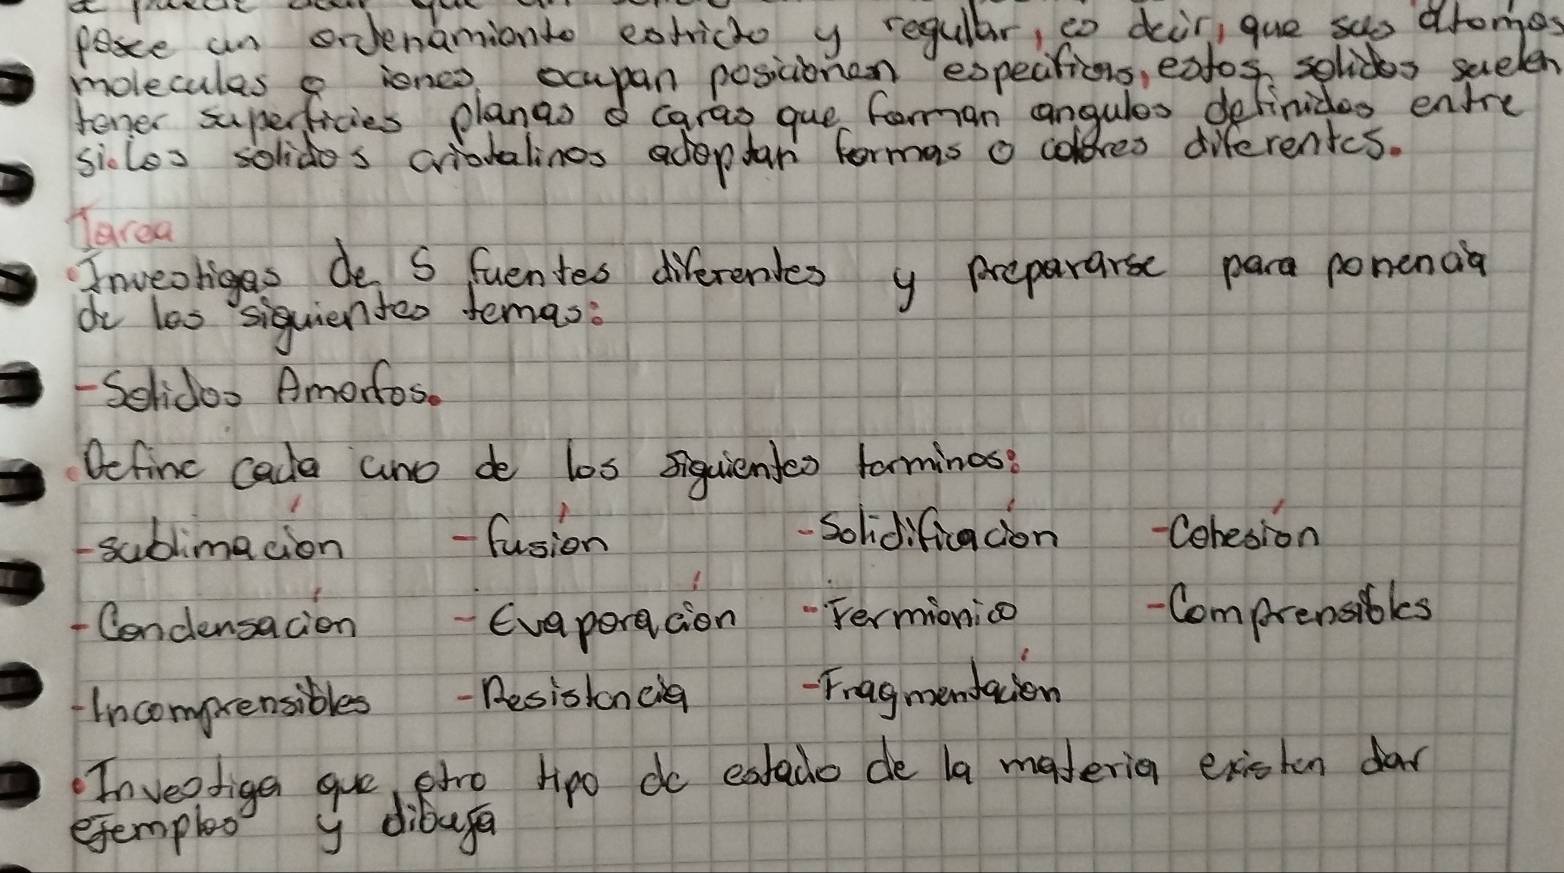 posee un ordenamionto estricto y regullar, es decir, que sus atomos
moleculas o iones, ocupan posicionen especificas, estos solidos suelen
tener superficies planas o caras que forman angulos definidos entre
si. Los solidos cristalinos adoptan formas o colores diferentes.
Tarea
• Investigas de 5 fuentes diferentes y prepararse para ponencia
de los siguientes temas:
- Solidos Amorfos.
• Define cada uno de los siguientes terminos:
- sublimación - fusión - Solidificación - Cohesión
- Condensación - Evaporación - Fermionico - Comprensibles
- Incomprensibles - Resistencia - Fragmentación
• Investiga que otro tipo de estado de la materia existen dar
ejemplos y dibuja